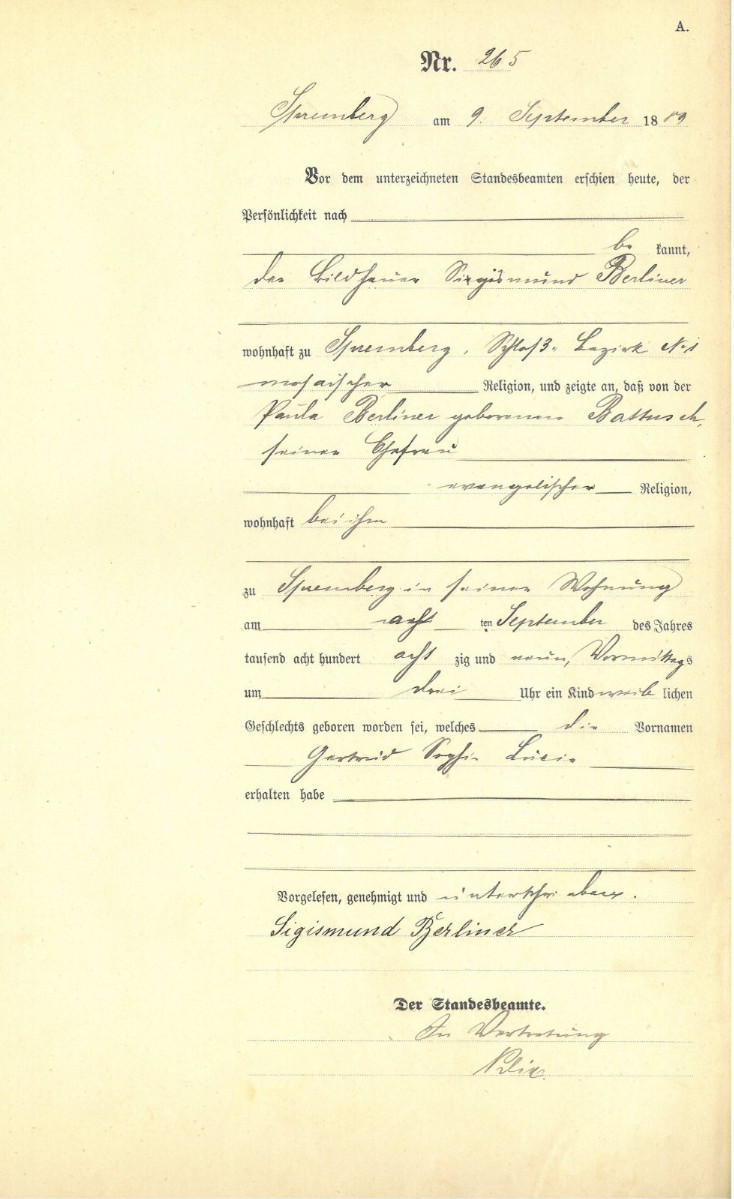 A.
Nr. 265
Spremberg am 9. September 1889
Vor dem unterzeichneten Standesbeamten erschien heute, der
Persönlichkeit nach
be kannt,
der Bildhauer Sigismund Berliner
wohnhaft zu Spremberg, Schloß-Bezirk No 1
mosaischer Religion, und zeigte an, daß von der
Paula Berliner geborenen
seiner Ehefrau
evangelischer Religion,
wohnhaft bei ihm
zu Spremberg in seiner Wohnung
am acht ten September des Jahres
tausend acht hundert acht zig und neun, Vormittags
um drei Uhr ein Kind weib lichen
Geschlechts geboren worden sei, welches die Vornamen
Gertrud Sophie Lucie
erhalten habe
Vorgelesen, genehmigt und unterschrieben.
Sigismund Berliner
Der Standesbeamte.
In Vertretung